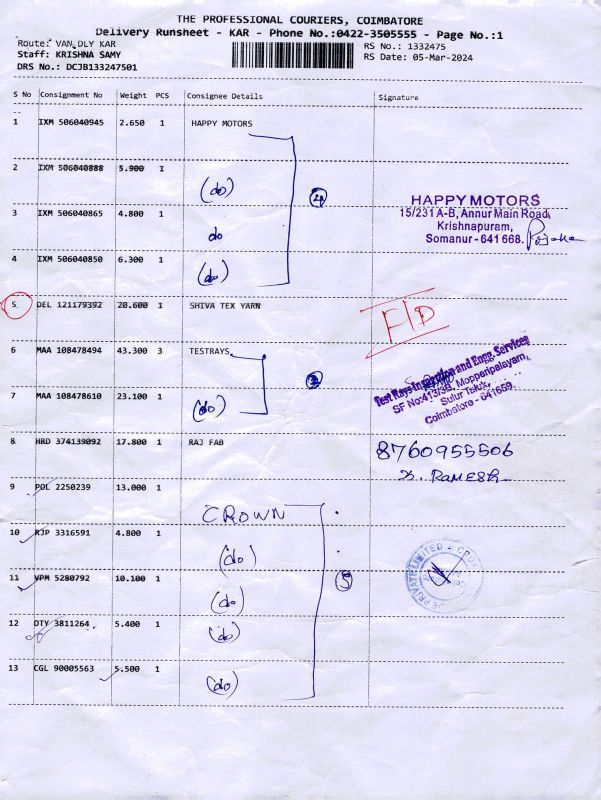 THE PROFESSIONAL COURIERS, COIMBATORE
Delivery Runsheet - KAR - Phone No.:0422-3505555 - Page No.:1
Route: VAN DLY KAR
RS No.: 1332475
Staff: KRISHNA SAMY
RS Date: 05-Mar-2024
DRS No.: DCJB133247501
S No Consignment No Weight PCS Consignee Details Signature
1 IXM 506040945 2.650 1 HAPPY MOTORS
2 IXM 506040888 5.900 1 (do)
4
HAPPY MOTORS
15/231 A-B, Annur Main Road,
Krishnapuram,
Somanur - 641 668.
3 IXM 506040865 4.800 1 do
4 IXM 506040850 6.300 1 (do)
5 DEL 121179392 20.600 1 SHIVA TEX YARN F/D
6 MAA 108478494 43.300 3 TESTRAYS
2
Test Rays Inspection and Engg. Services
SF No:413/3B, Mopperipalayam,
Sulur Taluk,
Coimbatore - 641659
7 MAA 108478610 23.100 1 (do)
8 HRD 374139092 17.800 1 RAJ FAB 8760955506
K. RAMESH
9 POL 2250239 13.000 1 CROWN
10 RJP 3316591 4.800 1 (do)
11 VPM 5280792 10.100 1 (do)
5
PRIVATE LIMITED
12 OTY 3811264 5.400 1 (do)
13 CGL 90005563 5.500 1 (do)